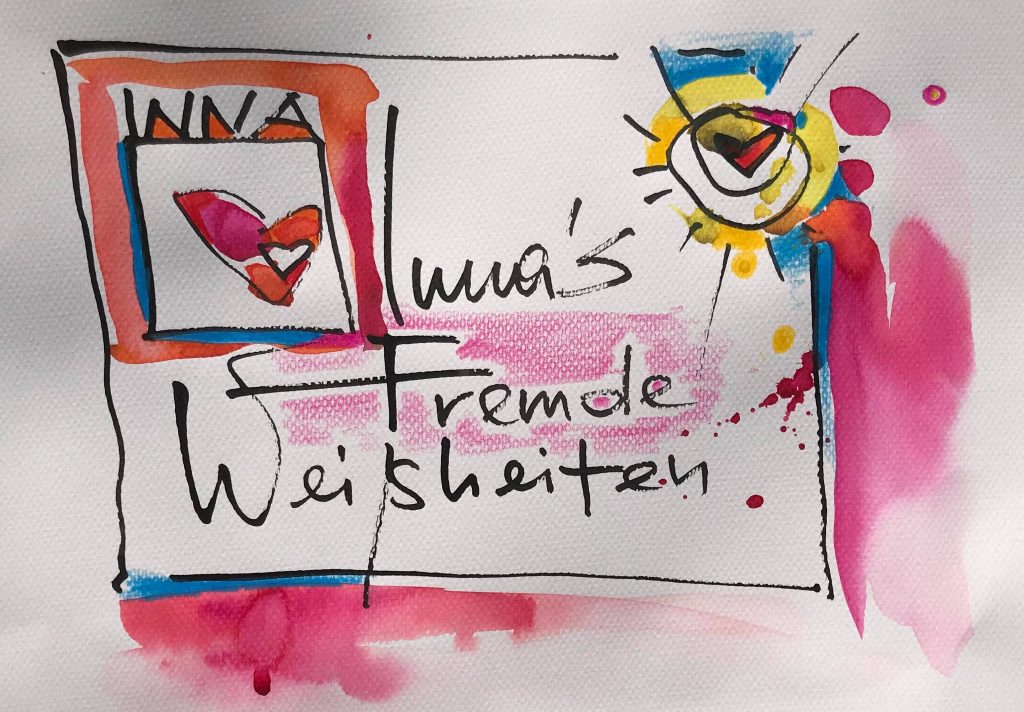 INNA
Inna's
Fremde
Weisheiten